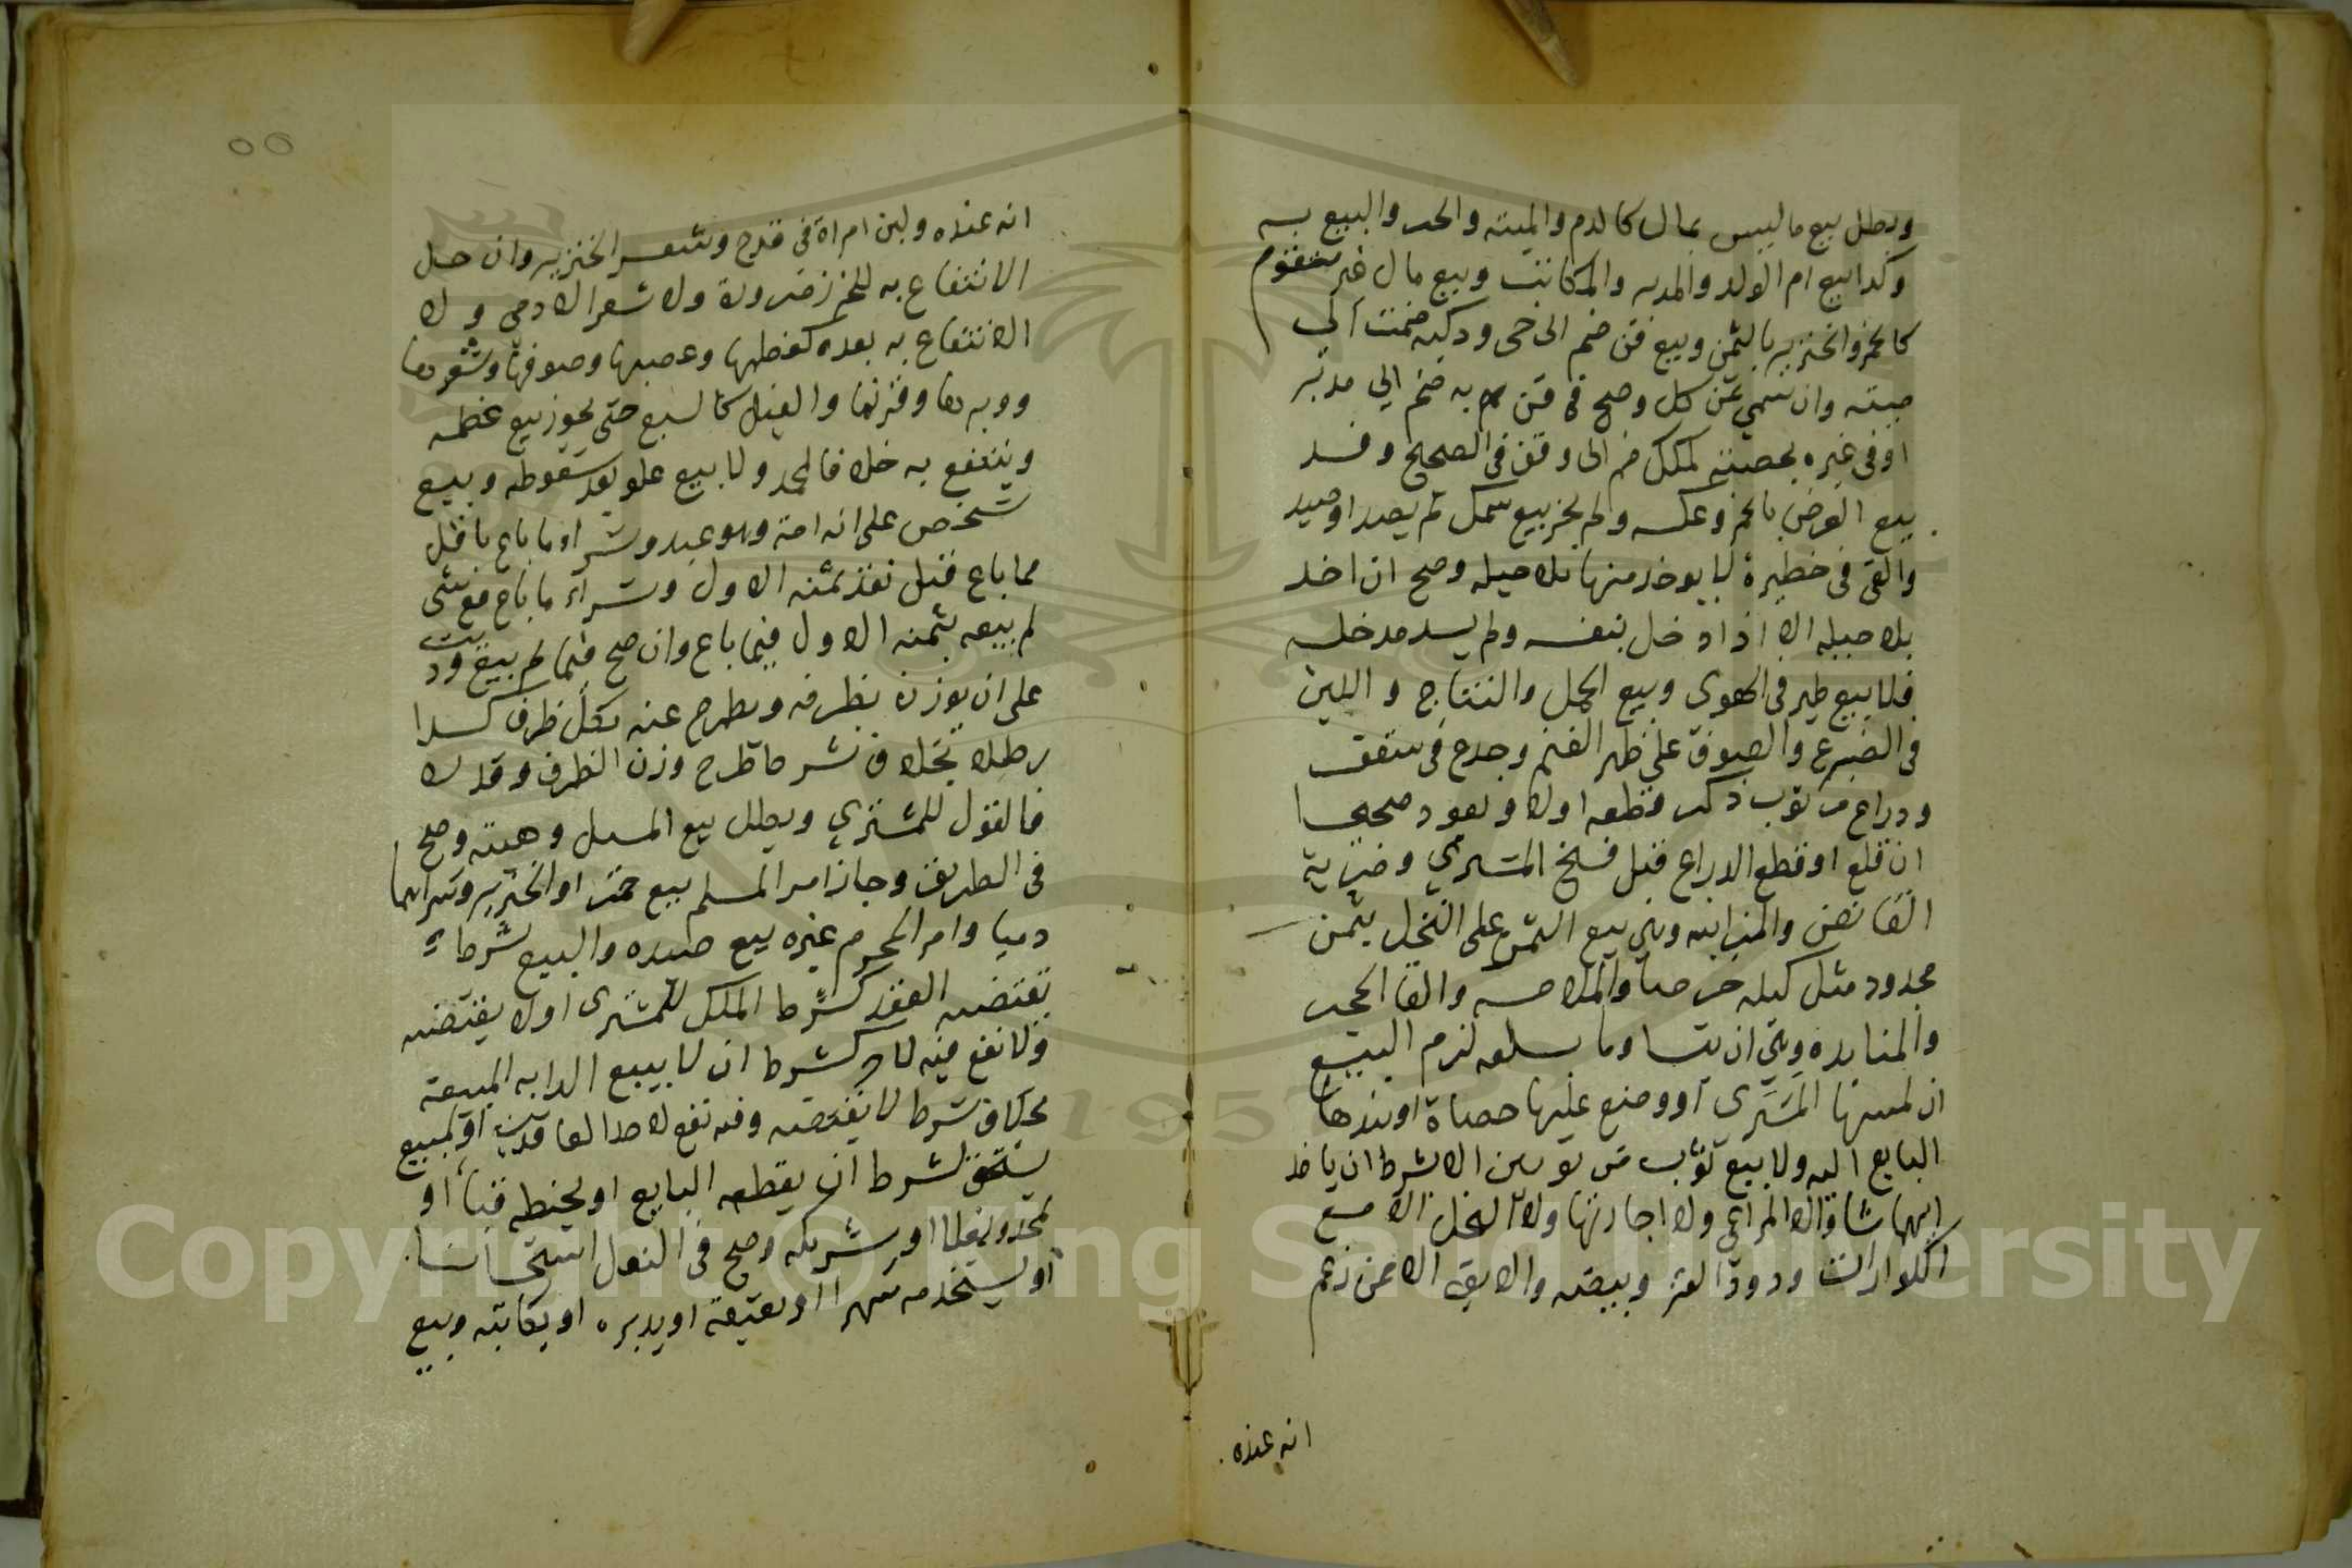 وبطل بيع ما ليس بمال كالدم والميته والحر والبيع به
وكدا بيع ام الولد والمدبر والمكاتب وبيع مال غير متقوم
كالخمر والخنزير بالثمن وبيع قن ضم الى حر ودكيه ضمت الى
ميته وان سمي ثمن كل وصح في قن ضم الي مدبر
او قن غيره بحصته كملك ضم الى وقف في الصحيح وفسد
بيع العرض بالخمر وعكسه ولم يجز بيع سمك لم يصد او صيد
والقى في حظيرة لا يوخد منها بلا حيله وصح ان اخد
بلا حيله الا اذا دخل بنفسه ولم يسد مدخله
فلا بيع طير في الهوى وبيع الحمل والنتاج واللبن
في الضرع والصوف على ظهر الغنم وجدع في سقف
ودراع من ثوب ذكر قطعه اولا ويعود صحيحا
ان قلع او قطع الدراع قبل فسخ المشتري وضربة
القانص والمزابنه وهي بيع الثمر على النخل بثمن
مجدود مثل كيله خرصا والملامسه والقا الحجر
والمنابده وهي ان يتساوما سلعه لزم البيع
ان لمسها المشترى او وضع عليها حصاة او نبدها
البايع اليه ولا بيع ثوب من ثوبين الا بشرط ان ياخد
ايهما شا والا المراعي ولا اجارتها ولا النحل الا مع
الكوارات ودود القز وبيضه والابق الا ممن زعم
انه عنده
انه عنده ولبن امراة في قدح وشعر الخنزير وان حل
الانتفاع به للخرز ضرورة ولا شعر الادمي ولا
الانتفاع به بعده كعظمها وعصبها وصوفها وشعرها
ووبرها وقرنها والفيل كالسبع حتى يجوز بيع عظمه
وينتفع به خلافا لمحمد ولا بيع علو بعد سقوطه وبيع
شخص على انه امة وهو عبد وشراء ما باع باقل
مما باع قبل نقد ثمنه الاول وشراء ما باع مع شى
لم يبعه بثمنه الاول فيما باع وان صح فيما لم يبع وزيت
على ان يوزن بظرفه ويطرح عنه بكل ظرف كدا
رطلا بخلاف شرط طرح وزن الظرف وقد لا
فالقول للمشتري وبطل بيع المسيل وهبته وصح
في الطريق وجاز امر المسلم ببيع خمر او الخنزير وشرايهما
دميا وامر المحرم غيره ببيع صيده والبيع بشرط
يقتضيه العقد كشرط الملك للمشترى او لا يقتضيه
ولا نفع فيه لاحد كشرط ان لا يبيع الدابه المبيعة
بخلاف شرط لا يقتضيه وفيه نفع لاحد العاقدين او لمبيع
يستحق كشرط ان يقطعه البايع او يخيطه قباء او
يحدو نعلا او يشركه وصح في النعل استحسانا
او يستخدمه شهرا او يعتقه او يدبره او يكاتبه وبيع